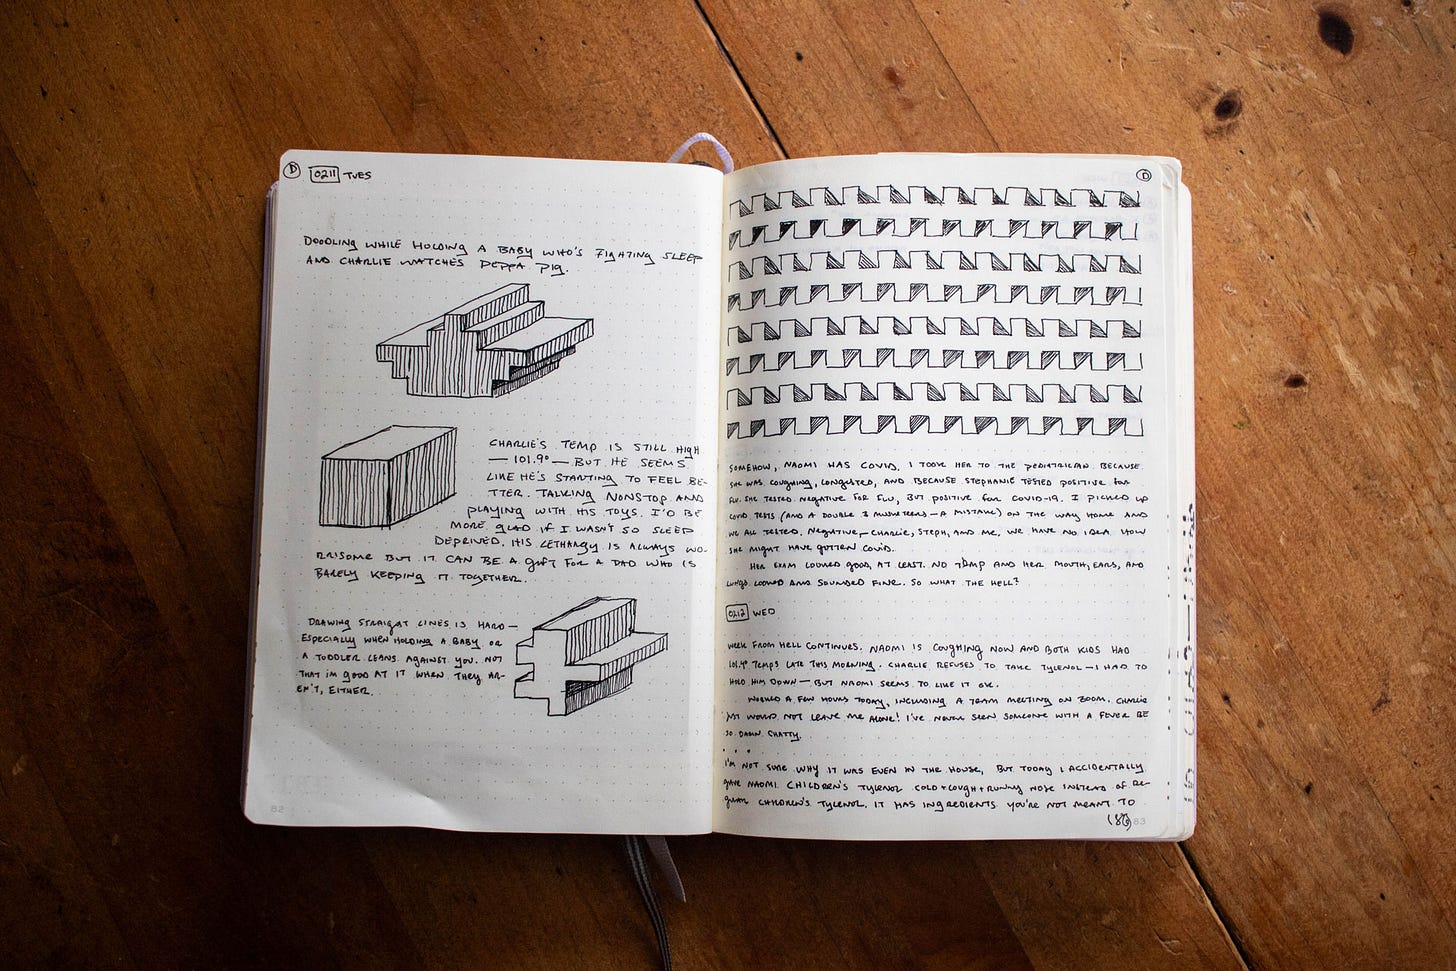 D 0211 TUES
DOODLING WHILE HOLDING A BABY WHO'S FIGHTING SLEEP
AND CHARLIE WATCHES PEPPA PIG.
CHARLIE'S TEMP IS STILL HIGH
— 101.9° — BUT HE SEEMS
LIKE HE'S STARTING TO FEEL BE-
TTER. TALKING NONSTOP AND
PLAYING WITH HIS TOYS. I'D BE
MORE GLAD IF I WASN'T SO SLEEP
DEPRIVED. HIS LETHARGY IS ALWAYS WO-
RRISOME BUT IT CAN BE A GIFT FOR A DAD WHO IS
BARELY KEEPING IT TOGETHER.
DRAWING STRAIGHT LINES IS HARD—
ESPECIALLY WHEN HOLDING A BABY OR
A TODDLER LEANS AGAINST YOU. NOT
THAT I'M GOOD AT IT WHEN THEY AR-
EN'T, EITHER.
82
D
SOMEHOW, NAOMI HAS COVID. I TOOK HER TO THE PEDIATRICIAN BECAUSE
SHE WAS COUGHING, CONGESTED, AND BECAUSE STEPHANIE TESTED POSITIVE FOR
FLU. SHE TESTED NEGATIVE FOR FLU, BUT POSITIVE FOR COVID-19. I PICKED UP
COVID TESTS (AND A DOUBLE 3 MUSKETEERS—A MISTAKE) ON THE WAY HOME AND
WE ALL TESTED NEGATIVE—CHARLIE, STEPH, AND ME. WE HAVE NO IDEA HOW
SHE MIGHT HAVE GOTTEN COVID.
HER EXAM LOOKED GOOD, AT LEAST. NO TEMP AND HER MOUTH, EARS, AND
LUNGS LOOKED AND SOUNDED FINE. SO WHAT THE HELL?
0212 WED
WEEK FROM HELL CONTINUES. NAOMI IS COUGHING NOW AND BOTH KIDS HAD
101.4° TEMPS LATE THIS MORNING. CHARLIE REFUSES TO TAKE TYLENOL—I HAD TO
HOLD HIM DOWN—BUT NAOMI SEEMS TO LIKE IT OK.
WORKED A FEW HOURS TODAY, INCLUDING A TEAM MEETING ON ZOOM. CHARLIE
JUST WOULD NOT LEAVE ME ALONE! I'VE NEVER SEEN SOMEONE WITH A FEVER BE
SO DAMN CHATTY.
. . .
I'M NOT SURE WHY IT WAS EVEN IN THE HOUSE, BUT TODAY I ACCIDENTALLY
GAVE NAOMI CHILDREN'S TYLENOL COLD+COUGH+RUNNY NOSE INSTEAD OF RE-
GULAR CHILDREN'S TYLENOL. IT HAS INGREDIENTS YOU'RE NOT MEANT TO
83